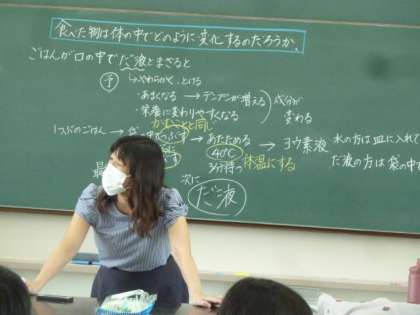 食べた物は体の中でどのように変化するのだろうか。
ごはんが口の中でだ液とまざると
予 やわらかく、とける
・あまくなる→デンプンが増える
・栄養に変わりやすくなる
成分が変わる
かむことと同じ
1つぶのごはん→ 中 つぶす→あたためる→ヨウ素液
水の方は皿に入れて
だ液の方は袋の中で
40℃
3分待つ 体温にする
最
次に
だ液